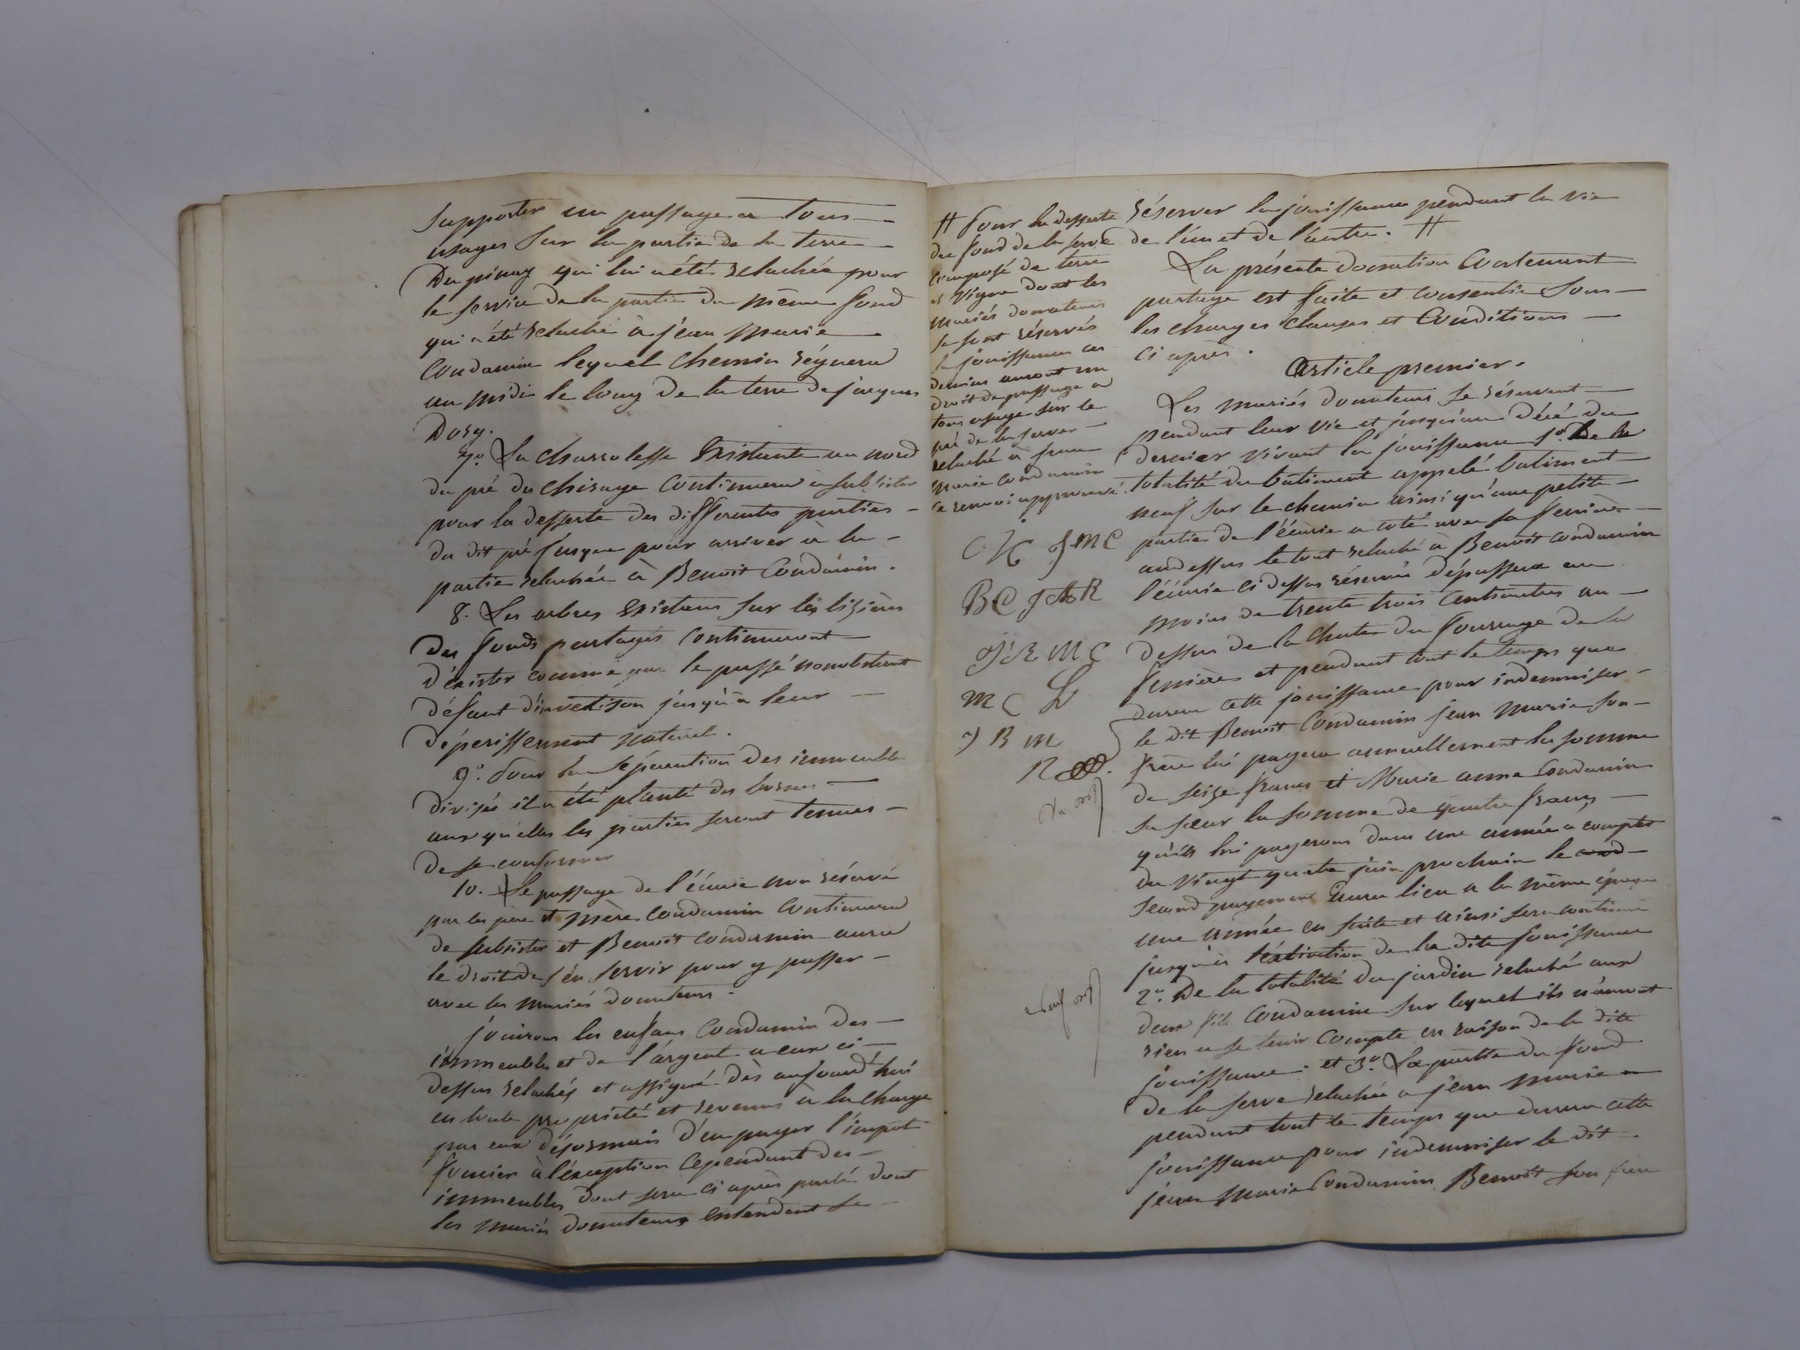 Supporter un passage a tous
usages sur la partie de la terre
Du pinay qui lui a été relachée pour
le service de la partie du même fond
qui a été relaché à jean marie
Condamin lequel chemin régnera
au midi le long de la terre de jacques
Dory.
7.o La charrolesse Existante au nord
du pré du chirage Continuera à subsister
pour la desserte des differentes parties
du dit pré jusque pour arriver à la
partie relachée à Benoit Condamin.
8. Les arbres Existans sur les lizières
Des fonds partagés Continueront
D'éxister comme par le passé nonobstant
défaut d'invetison jusqu'à leur
Dépérissement naturel.
9.o Pour la séparation des immeubles
divisés il a été planté des bornes
aux quelles les parties seront tenues
De se conformer
10. Le passage de l'écurie non réservé
par les pere et mère Condamin Continuera
de subsister et Benoit Condamin aura
le droit de s'en servir pour y passer
avec les mariés donateurs.
jouiront les enfans Condamin des
immeubles et de l'argent a eux ci
dessus relachés et assigné Dès aujourd'hui
en toute propriété et revenus à la charge
par eux désormais d'en payer l'impot
foncier à l'éxception Cependant des
immeubles dont sera ci après parlé dont
les mariés donateurs entendent se
réserver la jouissance pendant la vie
de l'un et de l'autre. #
La présente donation Contenant
partage est faite et consentie sous
les charges clauses et Conditions
ci après.
Article premier.
Les mariés donateurs se réservent
pendant leur vie et jusqu'au décé du
dernier vivant la jouissance 1.o De la
totalité du batiment appelé batiment
neuf sur le chemin ainsi qu'une petite
partie de l'écurie a coté avec sa fenière
au dessus le tout relaché à Benoit Condamin
l'écurie ci dessus réservée dépassera au
moins de trente trois Centimetres au
dessus de la chute du fourrage de la
fenière et pendant tout le temps que
durera cette jouissance pour indemniser
le dit Benoit Condamin jean marie son
frere lui payera annuellement la somme
de seize francs et Marie anne Condamin
sa sœur la somme de quatre francs
qu'ils lui payerons dans une année a compter
du vingt quatre juin prochain le
second payement aura lieu a la même époque
une année en suite et ainsi sera continué
jusqu'à l'éxtinction de la dite jouissance
2.o De la totalité du jardin relaché aux
deux fils Condamin sur lequel ils n'auront
rien a se tenir Compte en raison de la dite
jouissance. et 3.o La partie du fond
de la serve relachée a jean marie
pendant tout le temps que durera cette
jouissance pour indemniser le dit
jean Marie Condamin Benoit son frere
# Pour la desserte
du fond de la serve
composé de terre
et Vigne dont les
mariés donateurs
se sont réservés
la jouissance ces
derniers auront un
droit de passage a
tous usage sur le
pré de la serve
relaché à jean
marie condamin
ce renvoi approuvé.
C JMC
BC JAR
MC
MC
JBM
R